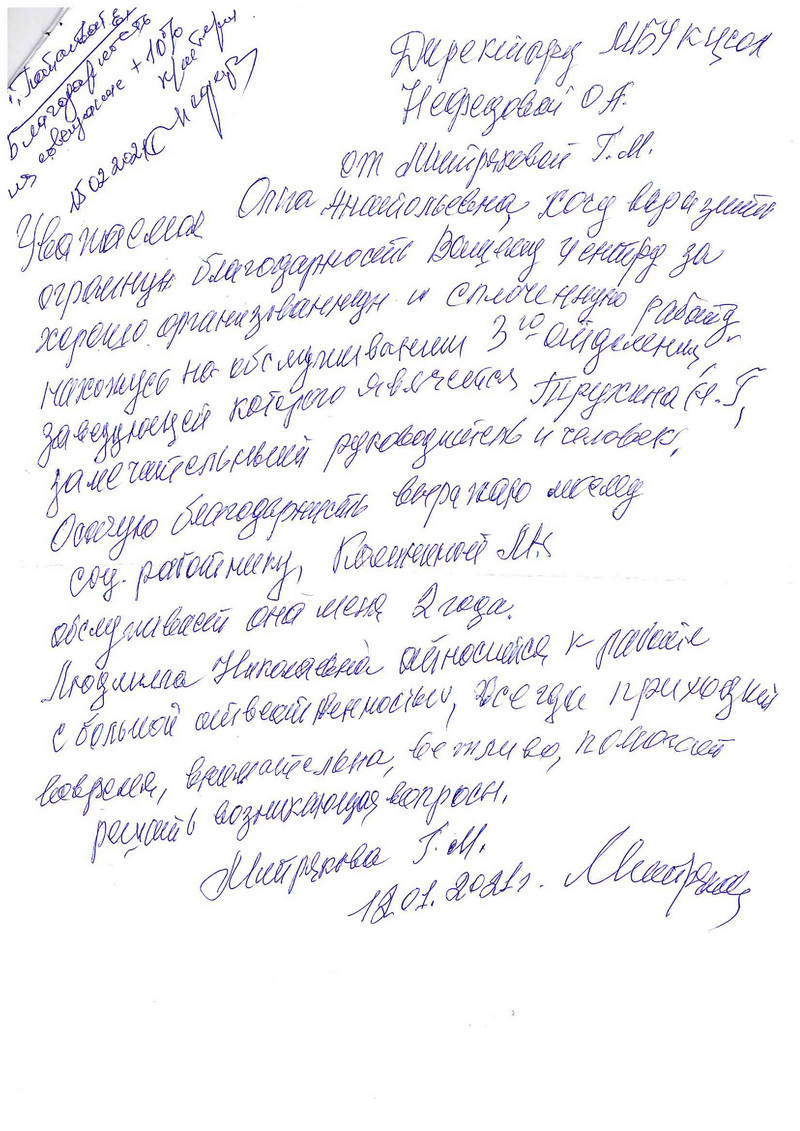 Благодарность
на совещание + 10%
15.02.2021
Директору МБУ КЦСОН
Нефедовой О А.
от Митряковой Г.М.
Уважаемая Ольга Анатольевна, хочу выразить
огромную благодарность Вашему центру за
хорошо организованную и сплоченную работу.
нахожусь на обслуживании 3го отделения,
заведующей которого является Трухина Н.Г,
замечательный руководитель и человек.
Особую благодарность выражаю моему
соц. работнику, Калининой Л.Н
обслуживает она меня 2 года.
Людмила Николаевна относится к работе
с большой ответственностью, всегда приходит
вовремя, внимательна, вежлива, помогает
решать возникающия вопросы.
Митрякова Г.М.
18.01.2021г.